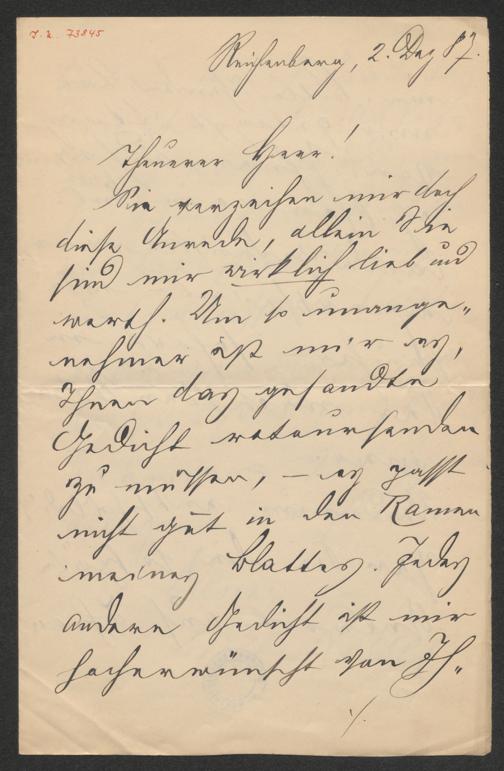 J. N. 73845
Reichenberg, 2. Dez 87.
Theuerer Herr!
Sie verzeihen mir doch
diese Anrede, allein Sie
sind mir wirklich lieb und
werth. Um so unange-
nehmer ist mir es,
Ihnen das gesandte
Gedicht retoursenden
zu müssen, – es passt
nicht gut in den Ramen
meines Blattes. Jedes
andere Gedicht ist mir
hocherwünscht von Ih-
./.